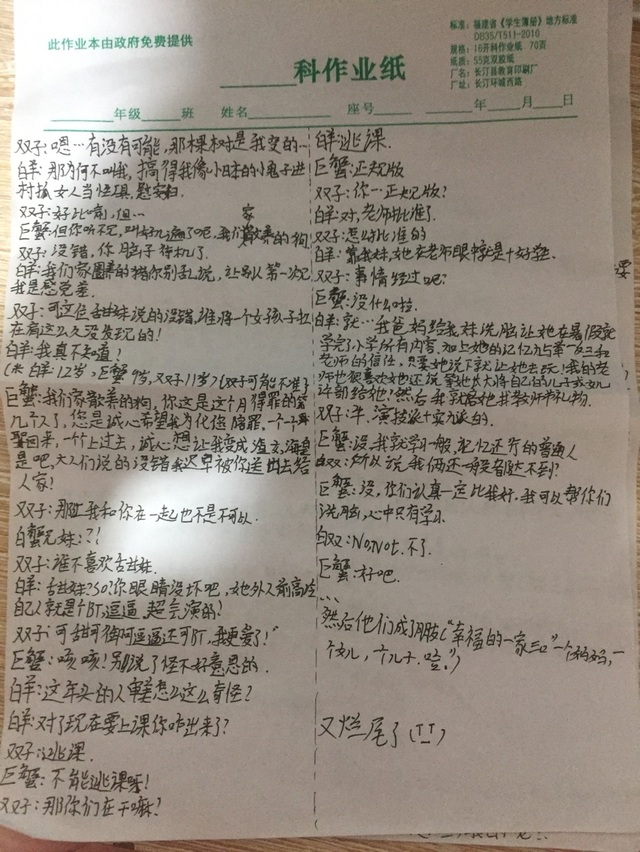 此作业本由政府免费提供
标准：福建省《学生簿册》地方标准
DB35/T511-2010
规格：16开科作业纸 70页
纸质：55克双胶纸
厂名：长汀县教育印刷厂
厂址：长汀环城西路
科作业纸
年级 班 姓名 座号 年 月 日
双子：嗯…有没有可能，那棵树是我变的…
白羊：那为何不叫我，搞得我像小日本的小鬼子进
村抓女人当
双子：好
巨蟹：但你听不见，叫好几遍了吧，我们家散养的狗
双子：没错，你脑子待机了.
白羊：我们家圈养的猪你别乱说，让别人第一次见
我是感觉差.
双子：可这位舌甘妹说的没错，谁将一个女孩子扛
在肩这么久没发现的！
白羊：我真不知道！
(米 白羊12岁，巨蟹9岁，双子11岁)(双子可能不准了
巨蟹：我们家散养的狗，你这是这个月得罪的第
几个人了，您是诚心希望我为化您赔罪，一个一个再
回来，一个上过去，诚心想让我变成渣女，海皇
是吧，大人们说的没错我迟早被你送出去给
人家！
双子：那让我和你在一起也不是不可以.
白蟹兄妹：？！
双子：谁不喜欢舌甘妹.
白羊：舌甘妹？SO？你眼睛没坏吧，她外人前高冷
自己人就是个BT，逗逼，超会演的！
双子：可甜可御阿逗逼还可BT，我更爱了！
巨蟹：咳咳！别说了怪不好意思的.
白羊：这年头的人审美怎么这么奇怪？
白羊：对了现在要上课你咋出来了？
双子：逃课.
巨蟹：不能逃课呀！
双子：那你们在干嘛？
白羊：逃课.
巨蟹：正规版
双子：你…正规版？
白羊：对，老师批准了.
双子：怎么批准的
白羊：靠我妹，她在老师眼中就是十好学生.
双子：事情经过呢？
巨蟹：没什么啦.
白羊：就…我爸妈给我妹洗脑让她在暑假就
学完了小学所有内容.加上她的记忆力与举一反三和
老师的信任，只要她说下就让她去玩！我的老
师也很喜欢她还说等她长大将自己的儿子或女儿
许配给她！然后我就陪她
双子：半，演技派+实力派的.
巨蟹：没，我就学习一般，记忆还行的普通人
白双：所以说我俩还一般者都达不到？
巨蟹：没，你们认真一定比我好.我可以帮你们
洗脑，心中只有学习.
白双：No,Not.不了.
巨蟹：好吧.
…
然后他们成了朋友("幸福的一家三口"一个妈妈，一
个女儿，一个儿子.噎.")
又烂尾了(TT)